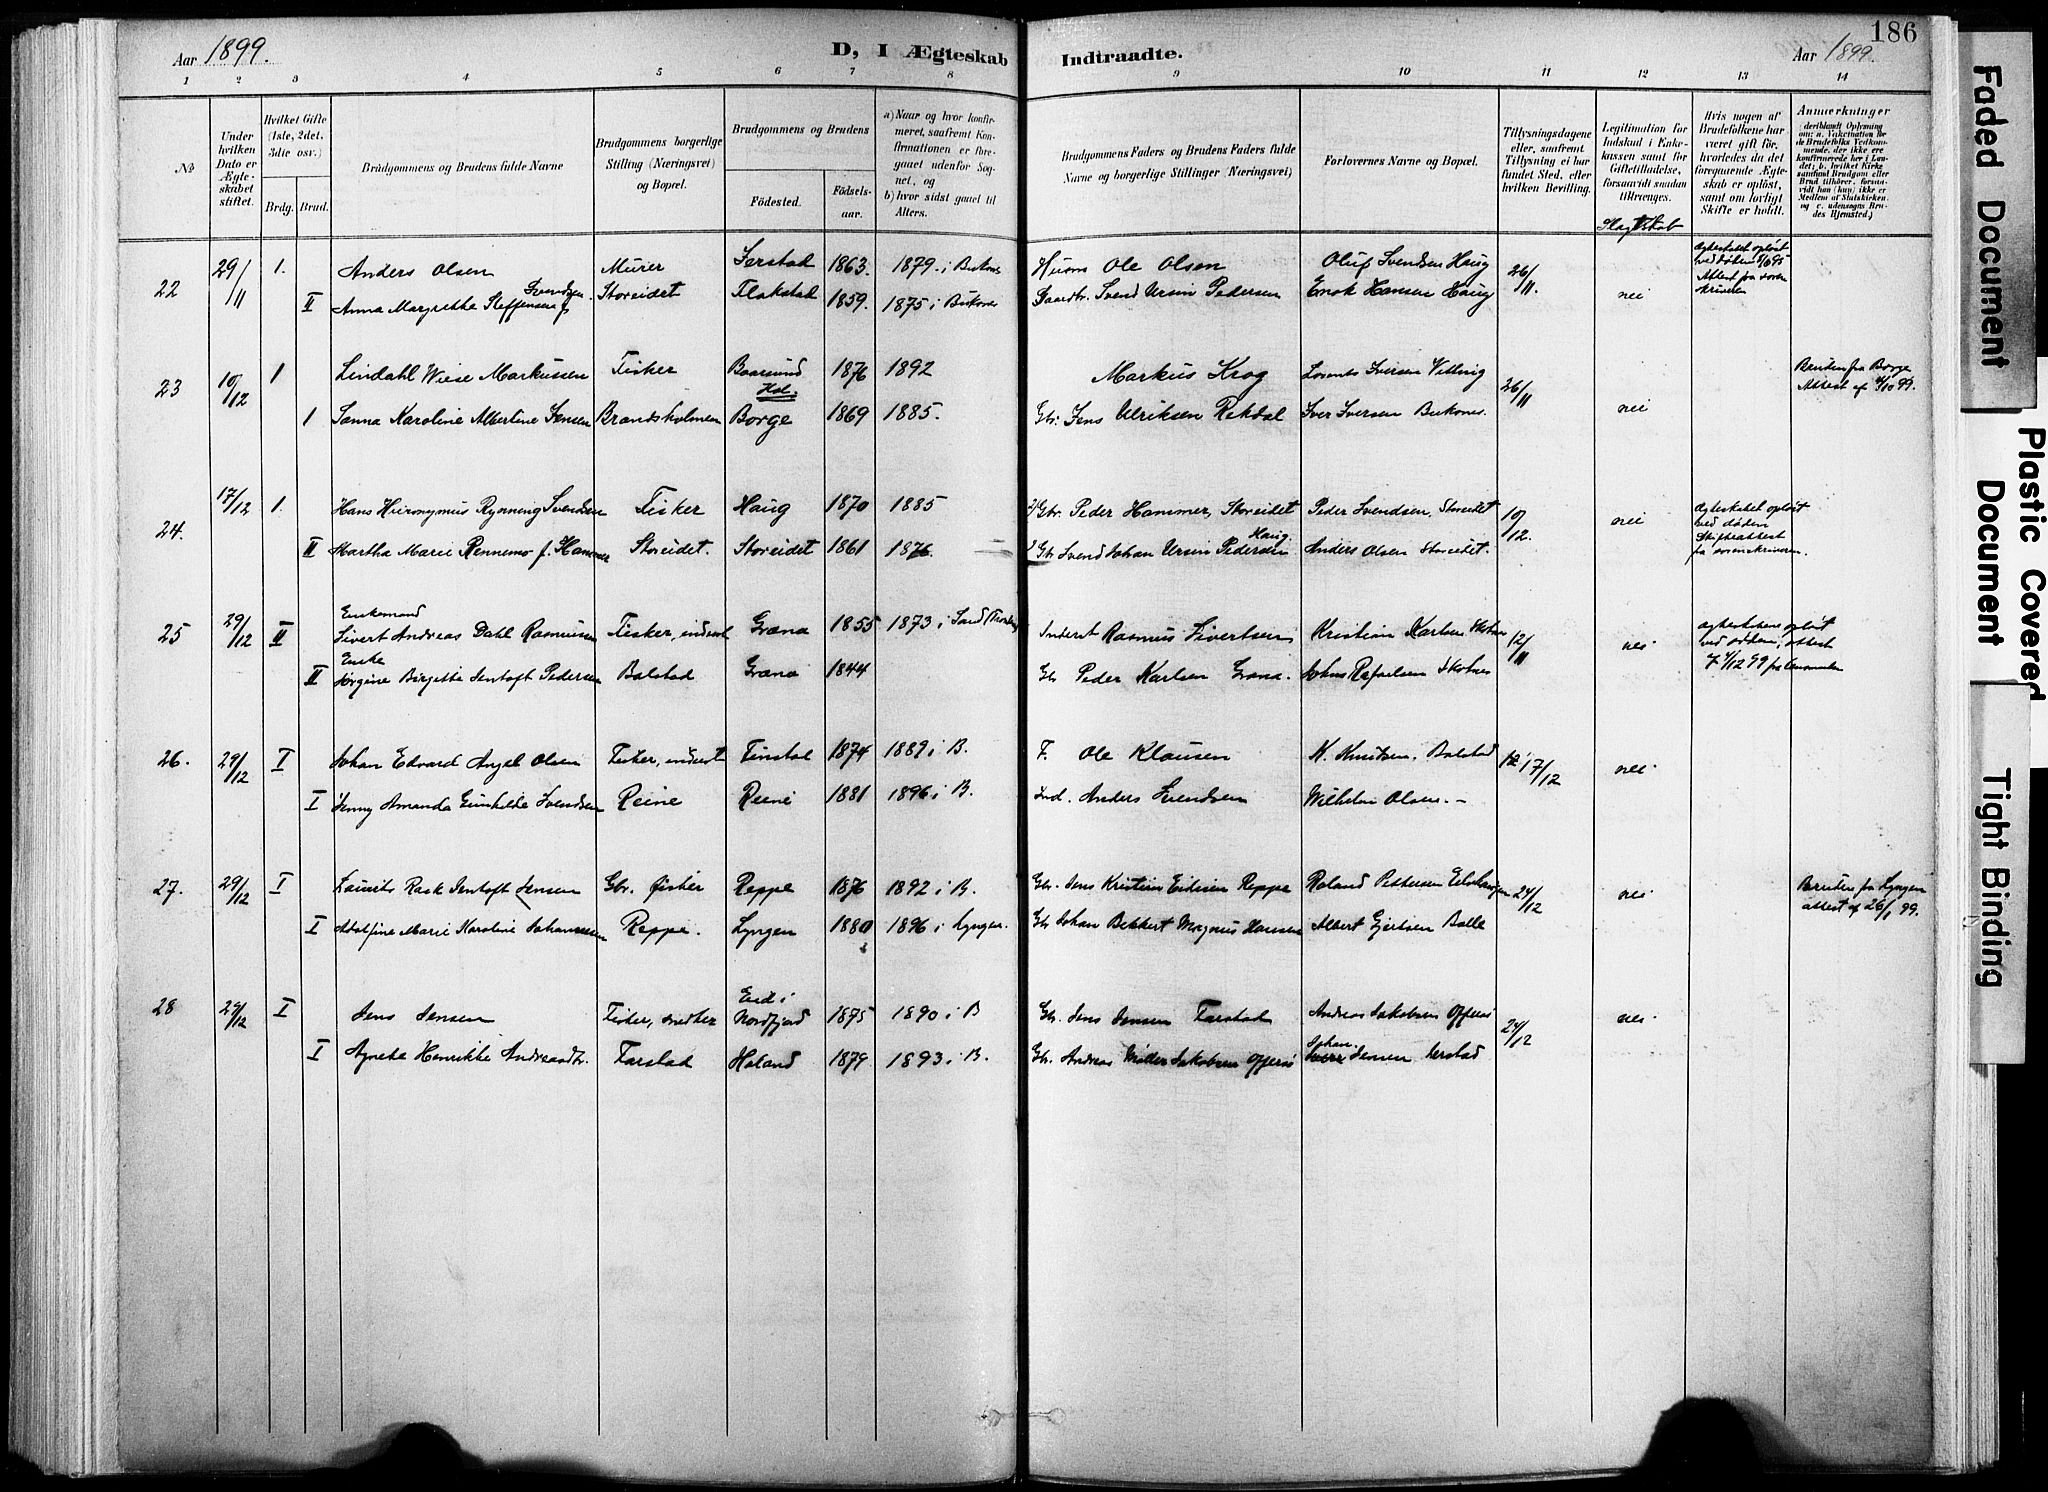 186
Aar 1899.
D, I Ægteskab Indtraadte.
Aar 1899.
1 2 3 4 5 6 7 8 9 10 11 12 13 14
No
Under hvilken Dato er Ægteskabet stiftet.
Hvilket Gifte (1ste, 2det, 3die osv.)
Brdg. Brud.
Brudgommens og Brudens fulde Navne
Brudgommens borgerlige Stilling (Næringsvei) og Bopæl.
Brudgommens og Brudens
Födested. Födselsaar.
a) Naar og hvor konfirmeret, saafremt Konfirmationen er foregaaet udenfor Sognet, og
b) hvor sidst gaaet til Alters.
Brudgommens Faders og Brudens Faders fulde Navne og borgerlige Stillinger (Næringsvei)
Forlovernes Navne og Bopæl.
Tillysningsdagene eller, saafremt Tillysning ei har fundet Sted, efter hvilken Bevilling.
Legitimation for Indskud i Enkekassen samt for Giftetilladelse, forsaavidt saadan tiltrænges.
Hvis nogen af Brudefolkene har været gift för, hvorledes da det foregaaende Ægteskab er oplöst, samt om lovligt Skifte er holdt.
Anmerkninger
22 29/11 1. Anders Olsen Murer 1863. 1879. i Buksnes Husm Ole Olsen Oluf Svendsen Haug 26/11. nei
II Anna Margrethe Steffensen f. Svendsen Storeidet Flakstad 1859. 1875 i Buksnes Gaardbr. Svend Ursin Pedersen Enok Hansen Haug
Ægteskabet opløst ved døden
Attest fra sorenskriveren
23 10/12 1 Lindahl Wiese Markussen Fisker Baarsund Hol. 1876 1892 Markus Krog 26/11 nei
1 Sanna Karoline Albertine Jensen Brandsholmen Borge 1869 1885. Gbr: Jens Ulriksen Rekdal Iver Iversen Buksnes.
Bruden fra Borge
Attest af 4/10 99.
24. 17/12 1. Hans Hieronymus Rynning Svendsen Fisker Haug 1870 1885 Gbr. Peder Hammer, Storeidet Peder Svendsen, Storeidet 10/12. nei
II Martha Marie Rennemo f. Hammer Storeidet. Storeidet 1861 1876. Gbr. Svend Johan Ursin Pedersen Haug Anders Olsen Storeidet.
Ægteskabet opløst ved døden
Skifteattest fra sorenskriveren.
25 29/12 II Enkemand
Sivert Andreas Dahl Rasmussen Fisker, inderst 1855 1873 i Inderst Rasmus Sivertsen Kristian Karlsen 12/11 nei
II Enke
Jørgine Birgitte Jentoft Pedersen Balstad 1844 Gb Peder Karlsen Johns Rafaelsen Skotnes
26. 29/12 I Johan Edvard Angel Olsen Fisker, inderst Finstad 1874 1889 i B. F. Ole Klausen K. Knutsen, Balstad 17/12 nei
I Jenny Amanda Gunhilde Svendsen Reine Reine 1881 1896 i B. Ind. Anders Svendsen Wilhelm Olsen. –
27. 29/12 I Laurits Rask Jentoft Jensen Gbr. fisker Reppe 1876 1892 i B. Gbr. Jens Kristian Reppe Roland Pettersen 24/12 nei
I Adolfine Marie Karoline Johannessen Reppe. Lyngen 1880 1896 i Lyngen. Gb Johan Bekkert Magnus Hansen Albert Gjertsen Balle
Bruden fra Lyngen
attest af 26/1 99.
28 29/12 I Jens Jensen Fisker, snedker Eid i Nordfjord 1875 1890 i B Gb. Jens Jensen Farstad Andreas Jakobsen 24/12 nei
I Agnete Henrikke Andreasdtr. Farstad Holand 1879 1893 i B. Gb. Andreas Møller Jakobsen Johan Jensen
Faded Document
Plastic Covered Document
Tight Binding